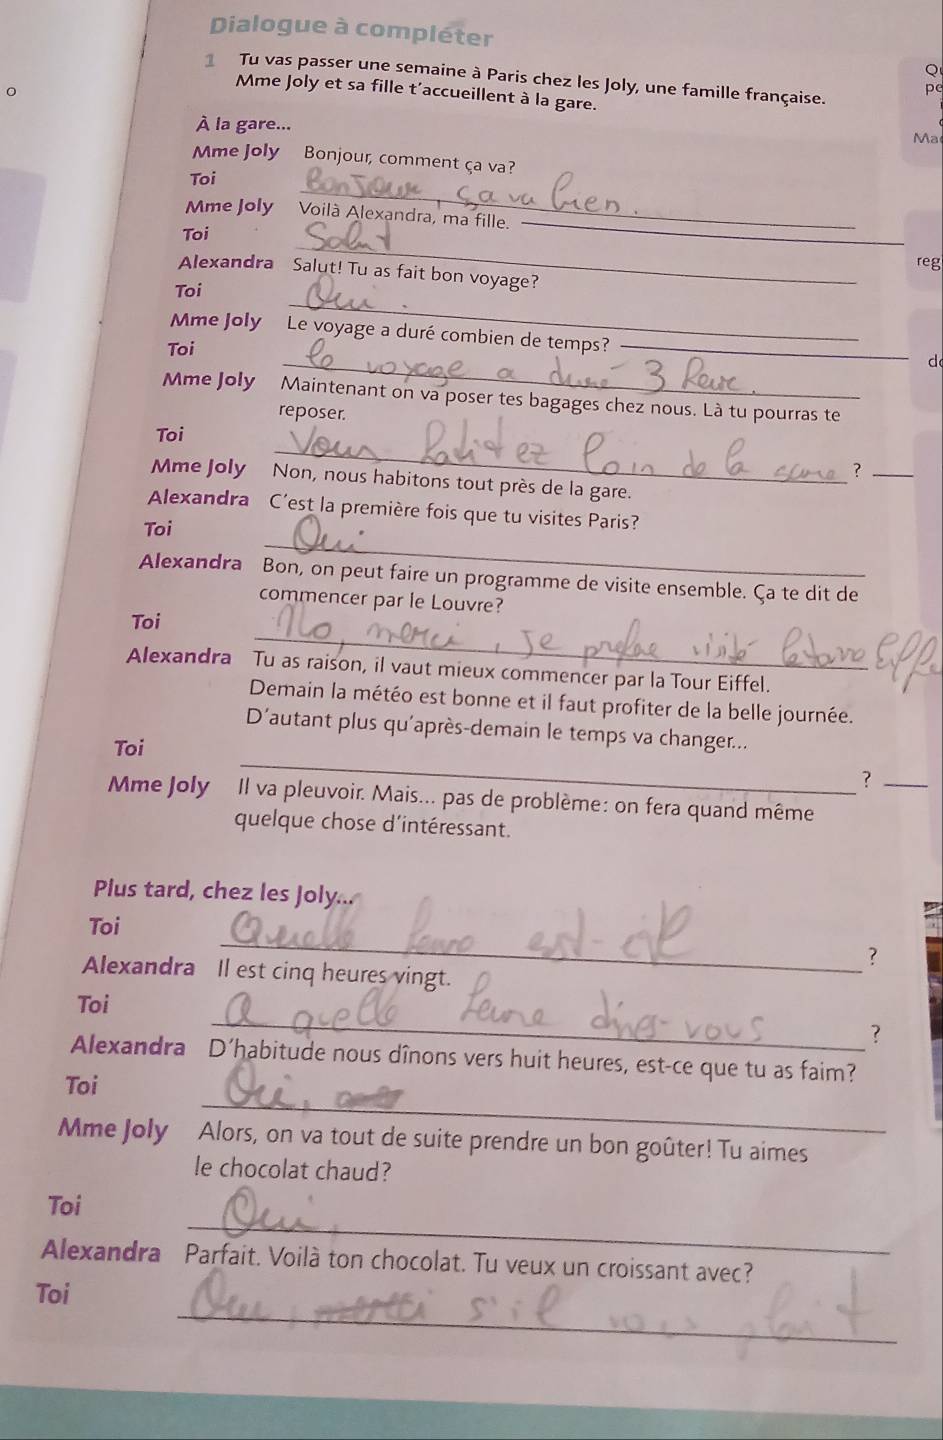 Dialogue à compléter
1 Tu vas passer une semaine à Paris chez les Joly, une famille française.
Mme Joly et sa fille t'accueillent à la gare.
À la gare...
Mme Joly Bonjour, comment ça va?
Toi Bonjour, ça va bien.
Mme Joly Voilà Alexandra, ma fille.
Toi Salut
Alexandra Salut! Tu as fait bon voyage?
Toi Oui.
Mme Joly Le voyage a duré combien de temps?
Toi le voyage a duré 3
Mme Joly Maintenant on va poser tes bagages chez nous. Là tu pourras te
reposer.
Toi Vous loin de la ?
Mme Joly Non, nous habitons tout près de la gare.
Alexandra C'est la première fois que tu visites Paris?
Toi Oui
Alexandra Bon, on peut faire un programme de visite ensemble. Ça te dit de
commencer par le Louvre?
Toi No, merci, Je visité
Alexandra Tu as raison, il vaut mieux commencer par la Tour Eiffel.
Demain la météo est bonne et il faut profiter de la belle journée.
D'autant plus qu'après-demain le temps va changer...
Toi ?
Mme Joly Il va pleuvoir. Mais... pas de problème: on fera quand même
quelque chose d'intéressant.
Plus tard, chez les Joly...
Toi Quelle est-
?
Alexandra Il est cinq heures vingt.
Toi a quelle vous ?
Alexandra D'habitude nous dînons vers huit heures, est-ce que tu as faim?
Toi Oui,
Mme Joly Alors, on va tout de suite prendre un bon goûter! Tu aimes
le chocolat chaud?
Toi Oui,
Alexandra Parfait. Voilà ton chocolat. Tu veux un croissant avec?
Toi Oui, s'il vous plait
Q
pe
Ma
reg
d